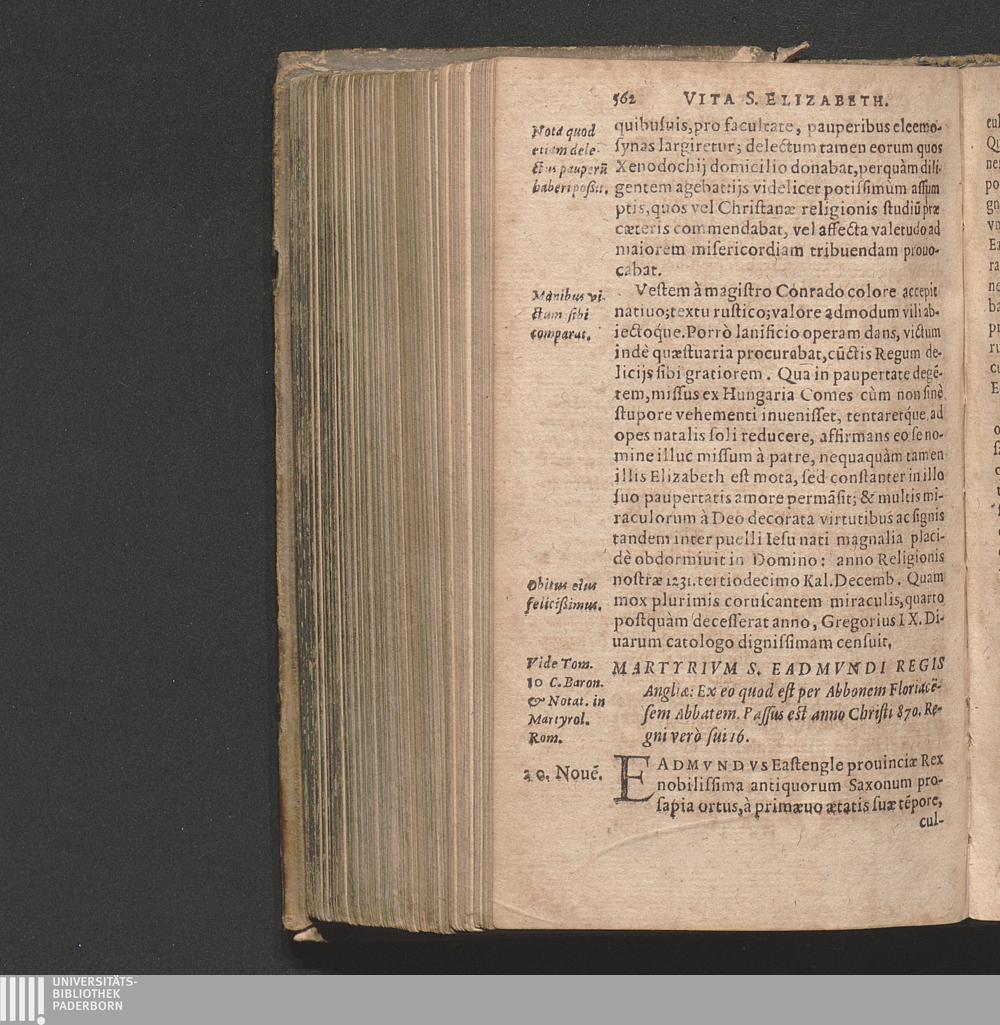 562 VITA S. ELIZABETH.
Nota quod
etiam dele-
ctus pauperũ
haberi poßit.
quibuſuis, pro facultate, pauperibus eleemo-
ſynas largiretur; delectum tamen eorum quos
Xenodochij domicilio donabat, perquàm dili-
gentem agebat: ijs videlicet potiſſimùm aſſum
ptis, quos vel Chriſtanæ religionis ſtudiũ præ
cæteris commendabat, vel affecta valetudo ad
maiorem miſericordiam tribuendam prouo-
cabat.
Manibus vi-
ctum ſibi
comparat.
Veſtem à magiſtro Conrado colore accepit
natiuo; textu ruſtico; valore admodum vili ab-
iectoque. Porrò lanificio operam dans, victum
indè quæſtuaria procurabat, cũctis Regum de-
licijs ſibi gratiorem. Qua in paupertate degẽ-
tem, miſſus ex Hungaria Comes cùm non ſinè
ſtupore vehementi inueniſſet, tentaretq́ue ad
opes natalis ſoli reducere, affirmans eo ſe no-
mine illuc miſſum à patre, nequaquàm tamen
illis Elizabeth eſt mota, ſed conſtanter in illo
ſuo paupertatis amore permãſit; & multis mi-
raculorum à Deo decorata virtutibus ac ſignis
tandem inter puelli Ieſu nati magnalia placi-
dè obdormiuit in Domino: anno Religionis
noſtræ 1231. tertiodecimo Kal. Decemb. Quam
mox plurimis coruſcantem miraculis, quarto
poſtquàm deceſſerat anno, Gregorius IX. Di-
uarum catologo digniſſimam cenſuit.
Obitus eius
feliciſsimus.
Vide Tom.
10 C. Baron.
& Notat. in
Martyrol.
Rom.
MARTYRIVM S. EADMVNDI REGIS
Angliæ: Ex eo quod eſt per Abbonem Floriacẽ-
ſem Abbatem. Paſſus eſt anno Chriſti 870. Re-
gni verò ſui 16.
20. Nouẽ.
EADMVNDVS Eaſtengle prouinciæ Rex
nobiliſſima antiquorum Saxonum pro-
ſapia ortus, à primæuo ætatis ſuæ tẽpore,
cul-
UNIVERSITÄTS-
BIBLIOTHEK
PADERBORN